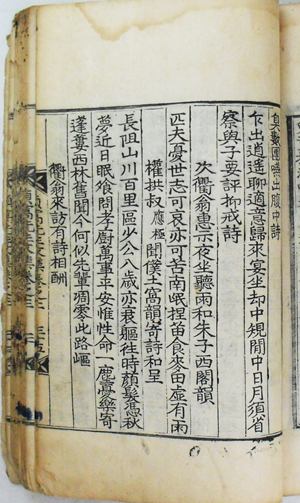 出腹中詩
乍出逍遥聊適意歸來宴坐却中規閒中日月須省
察與子要評抑戒詩
次衢翁惠示夜坐聽雨和朱子西閣韻
匹夫憂世志可哀亦可苦南岷捏苗食麥田虛有雨
權拱叔應極聞僕土窩韻寄詩和呈
長阻山川百里區少公八歲亦衰軀往時顔髮憑秋
夢近日眠飡問孝廚萬事平安惟性命一憂樂寄
蓬西林舊聞今何似先輩凋零此路嶇
衢翁來訪有詩相酬